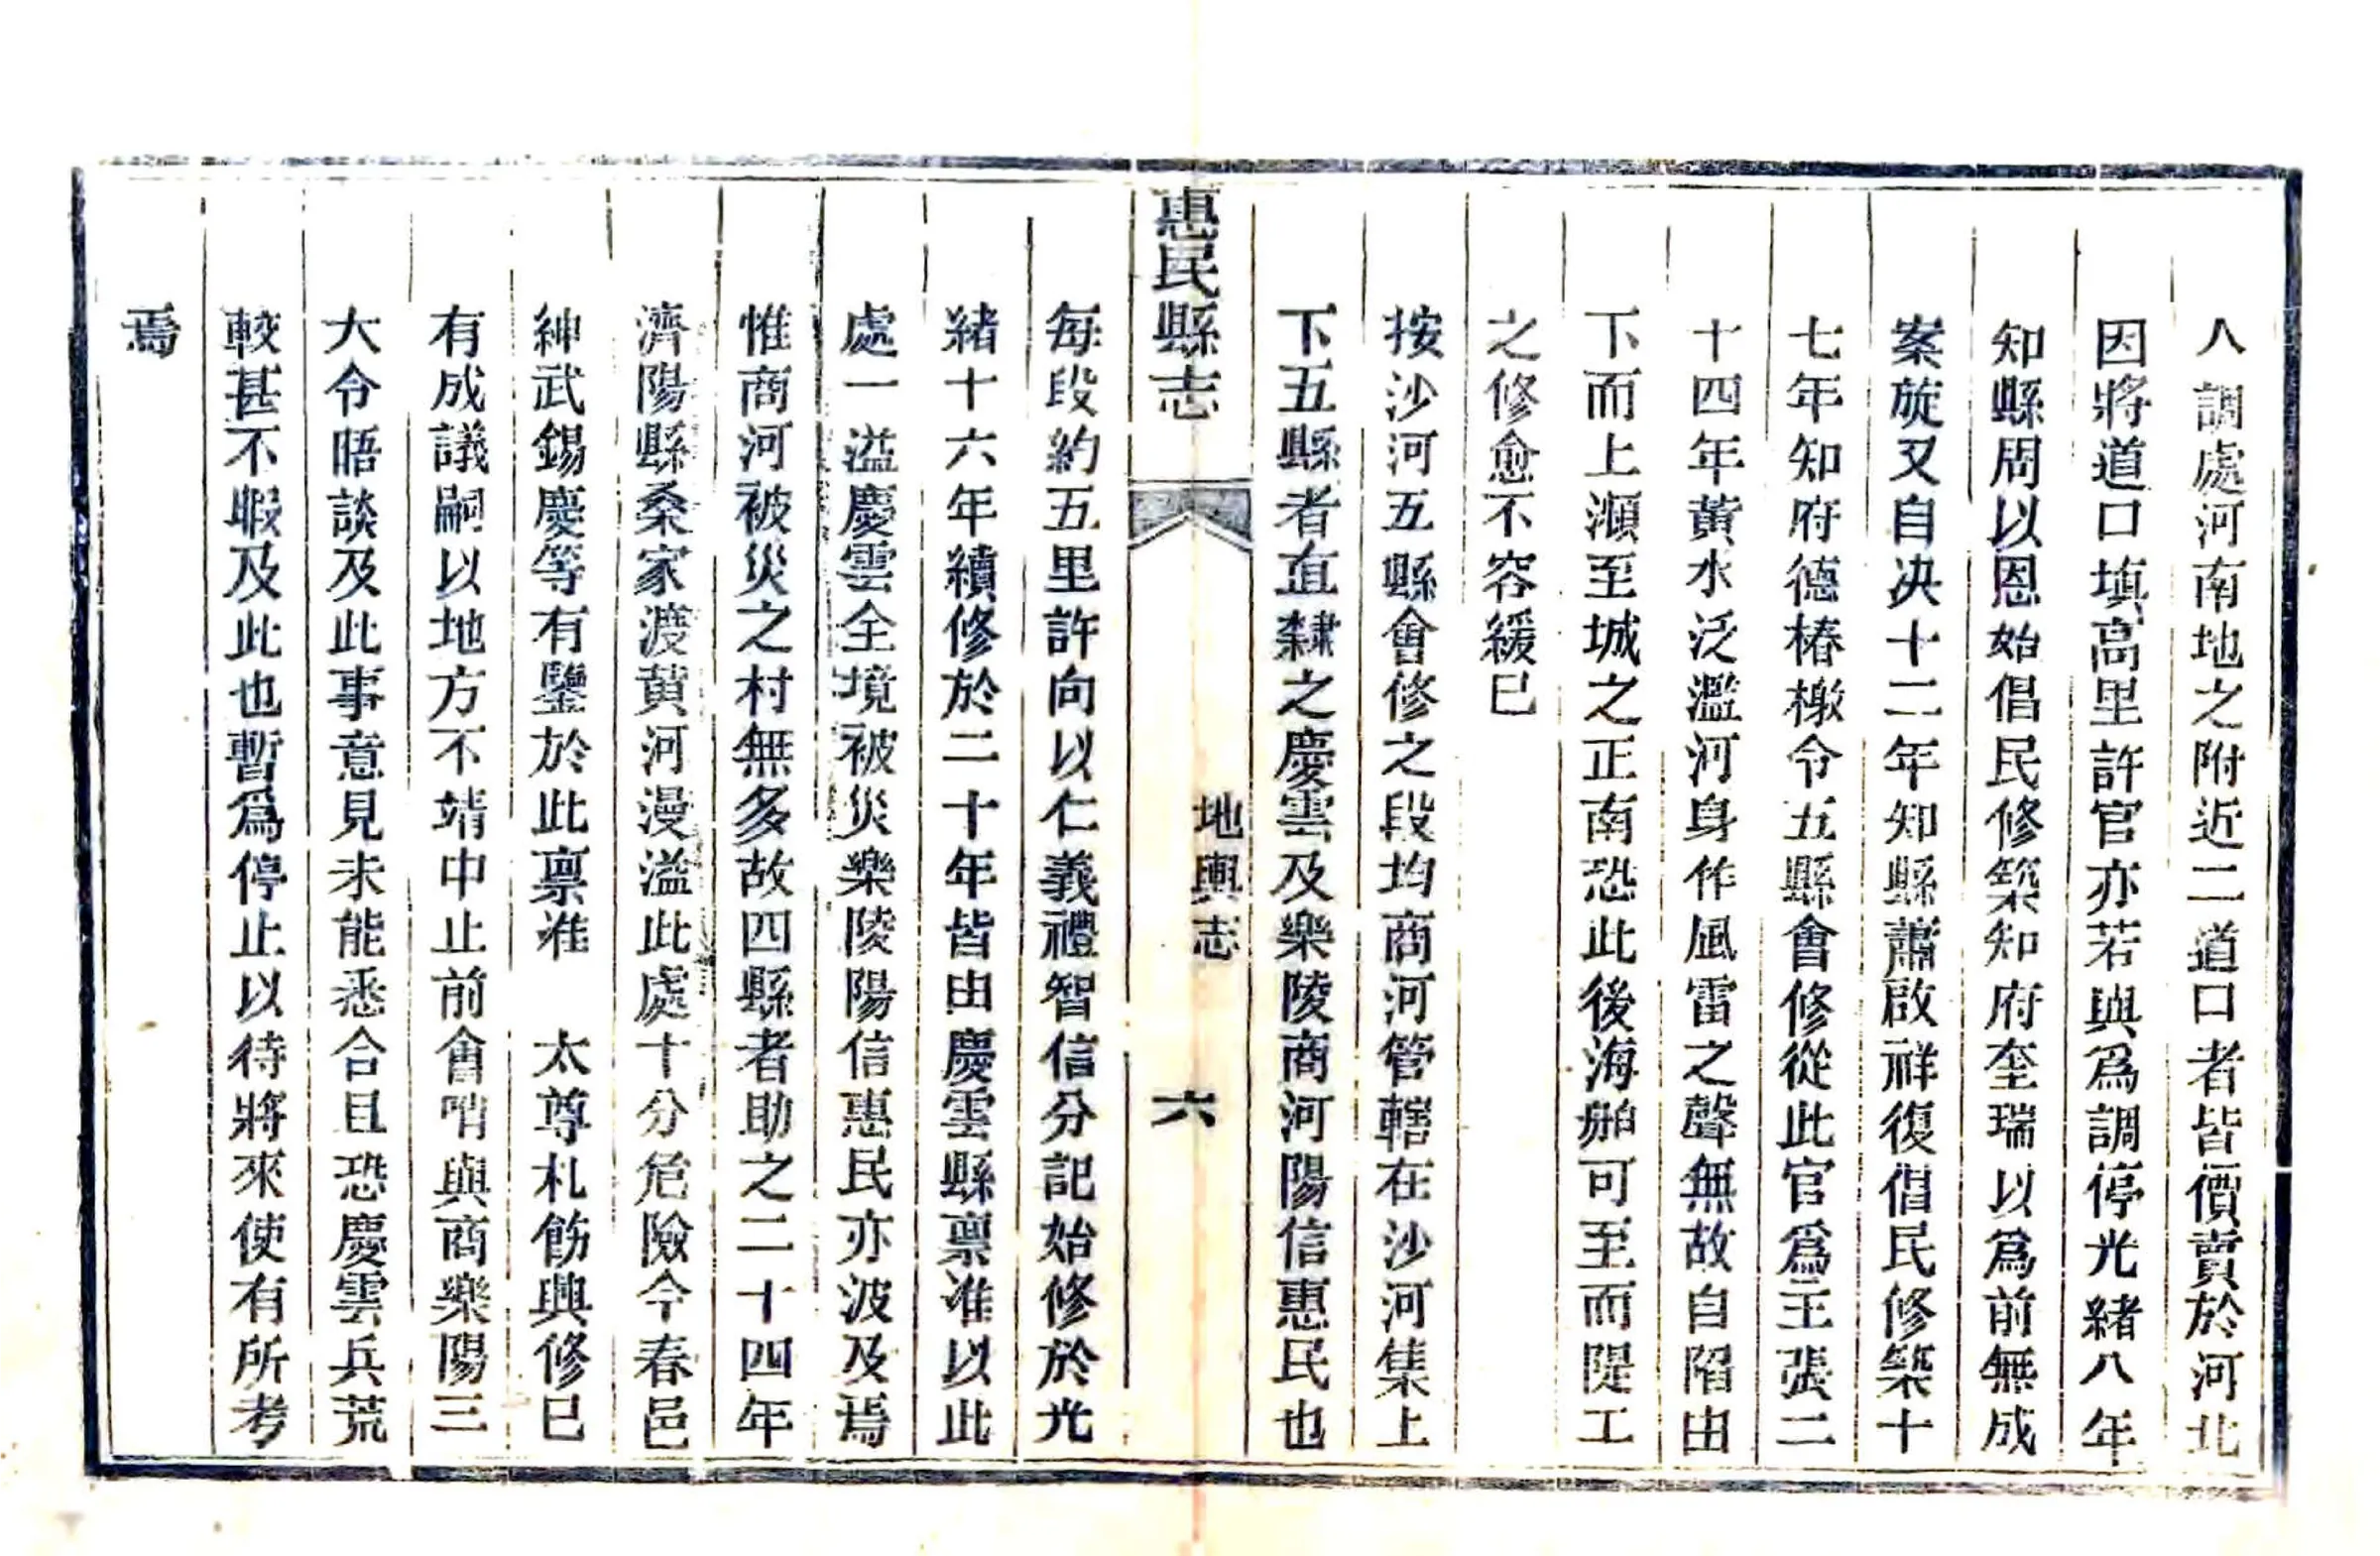 人調處河南地之附近二道口者皆價賣於河北
因將道口填高里許官亦若與爲調停光緒八年
知縣周以恩始倡民修築知府奎瑞以爲前無成
案旋又自决十二年知縣蕭啟祥復倡民修築十
七年知府德椿檄令五縣會修從此官爲主張二
十四年黃水泛濫河身作風雷之聲無故自陷由
下而上瀕至城之正南恐此後海舶可至而隄工
之修愈不容緩已
按沙河五縣會修之段均商河管轄在沙河集上
下五縣者直隸之慶雲及樂陵商河陽信惠民也
惠民縣志
地輿志
六
每段約五里許向以仁義禮智信分記始修於光
緒十六年續修於二十年皆由慶雲縣禀准以此
處一溢慶雲全境被災樂陵陽信惠民亦波及焉
惟商河被災之村無多故四縣者助之二十四年
濟陽縣桑家渡黃河漫溢此處十分危險今春邑
紳武錫慶等有鑒於此禀准　太尊札飭興修已
有成議嗣以地方不靖中止前會哨與商樂陽三
大令晤談及此事意見未能悉合且恐慶雲兵荒
較甚不暇及此也暫爲停止以待將來使有所考
焉